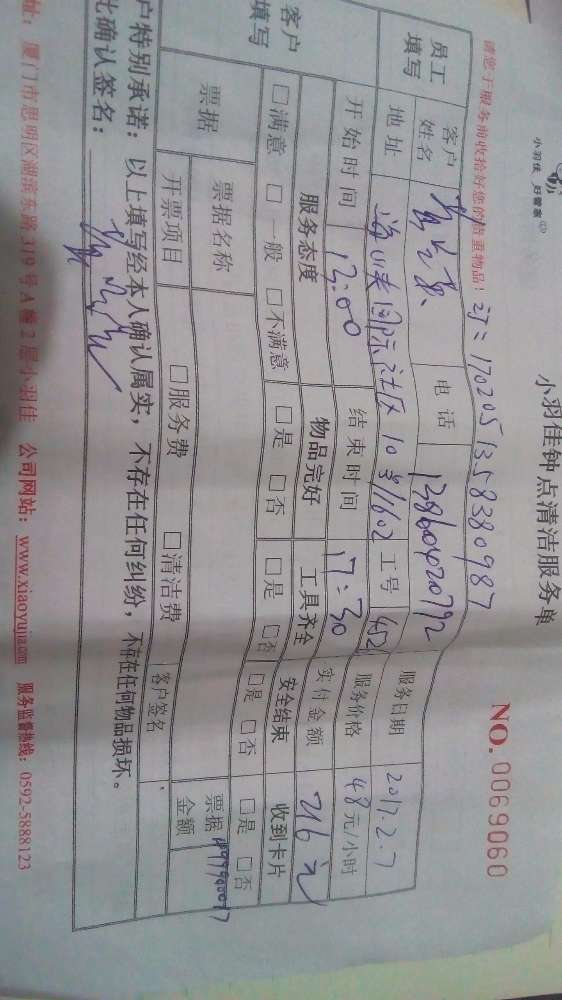 小羽佳 好管家
小羽佳钟点清洁服务单
NO. 0069060
请您于服务前收拾好您的贵重物品！
1702051358380987
员工填写
客户姓名
电话 13860420792
服务日期 2017.2.7
地址
国际社区10号1602
工号 452
服务价格 48元/小时
开始时间 13:00
结束时间 17:30
实付金额 216元
客户填写
服务态度 物品完好 工具齐全 安全结束 收到卡片
□满意 □一般 □不满意 □是 □否 □是 □否 □是 □否 □是 □否
票据
票据名称
票据金额
开票项目 □服务费 □清洁费 客户签名
户特别承诺：以上填写经本人确认属实，不存在任何纠纷，不存在任何物品损坏。
比确认签名：
址：厦门市思明区湖滨东路319号A幢2层小羽佳 公司网站：www.xiaoyujia.com 服务监督热线：0592-5888123